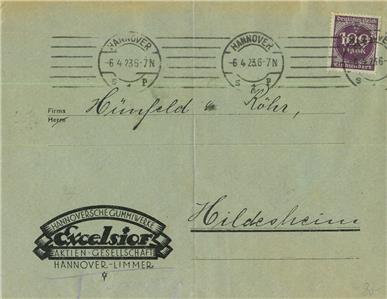 HANNOVER
-6 4 23.6-7N
S P
HANNOVER
-6 4 23.6-7N
S P
Deutsches Reich
100
Mark
Firma
Herrn
Hünfeld & Röhr,
Hildesheim
HANNOVERSCHE GUMMIWERKE
Excelsior
AKTIEN-GESELLSCHAFT
HANNOVER-LIMMER